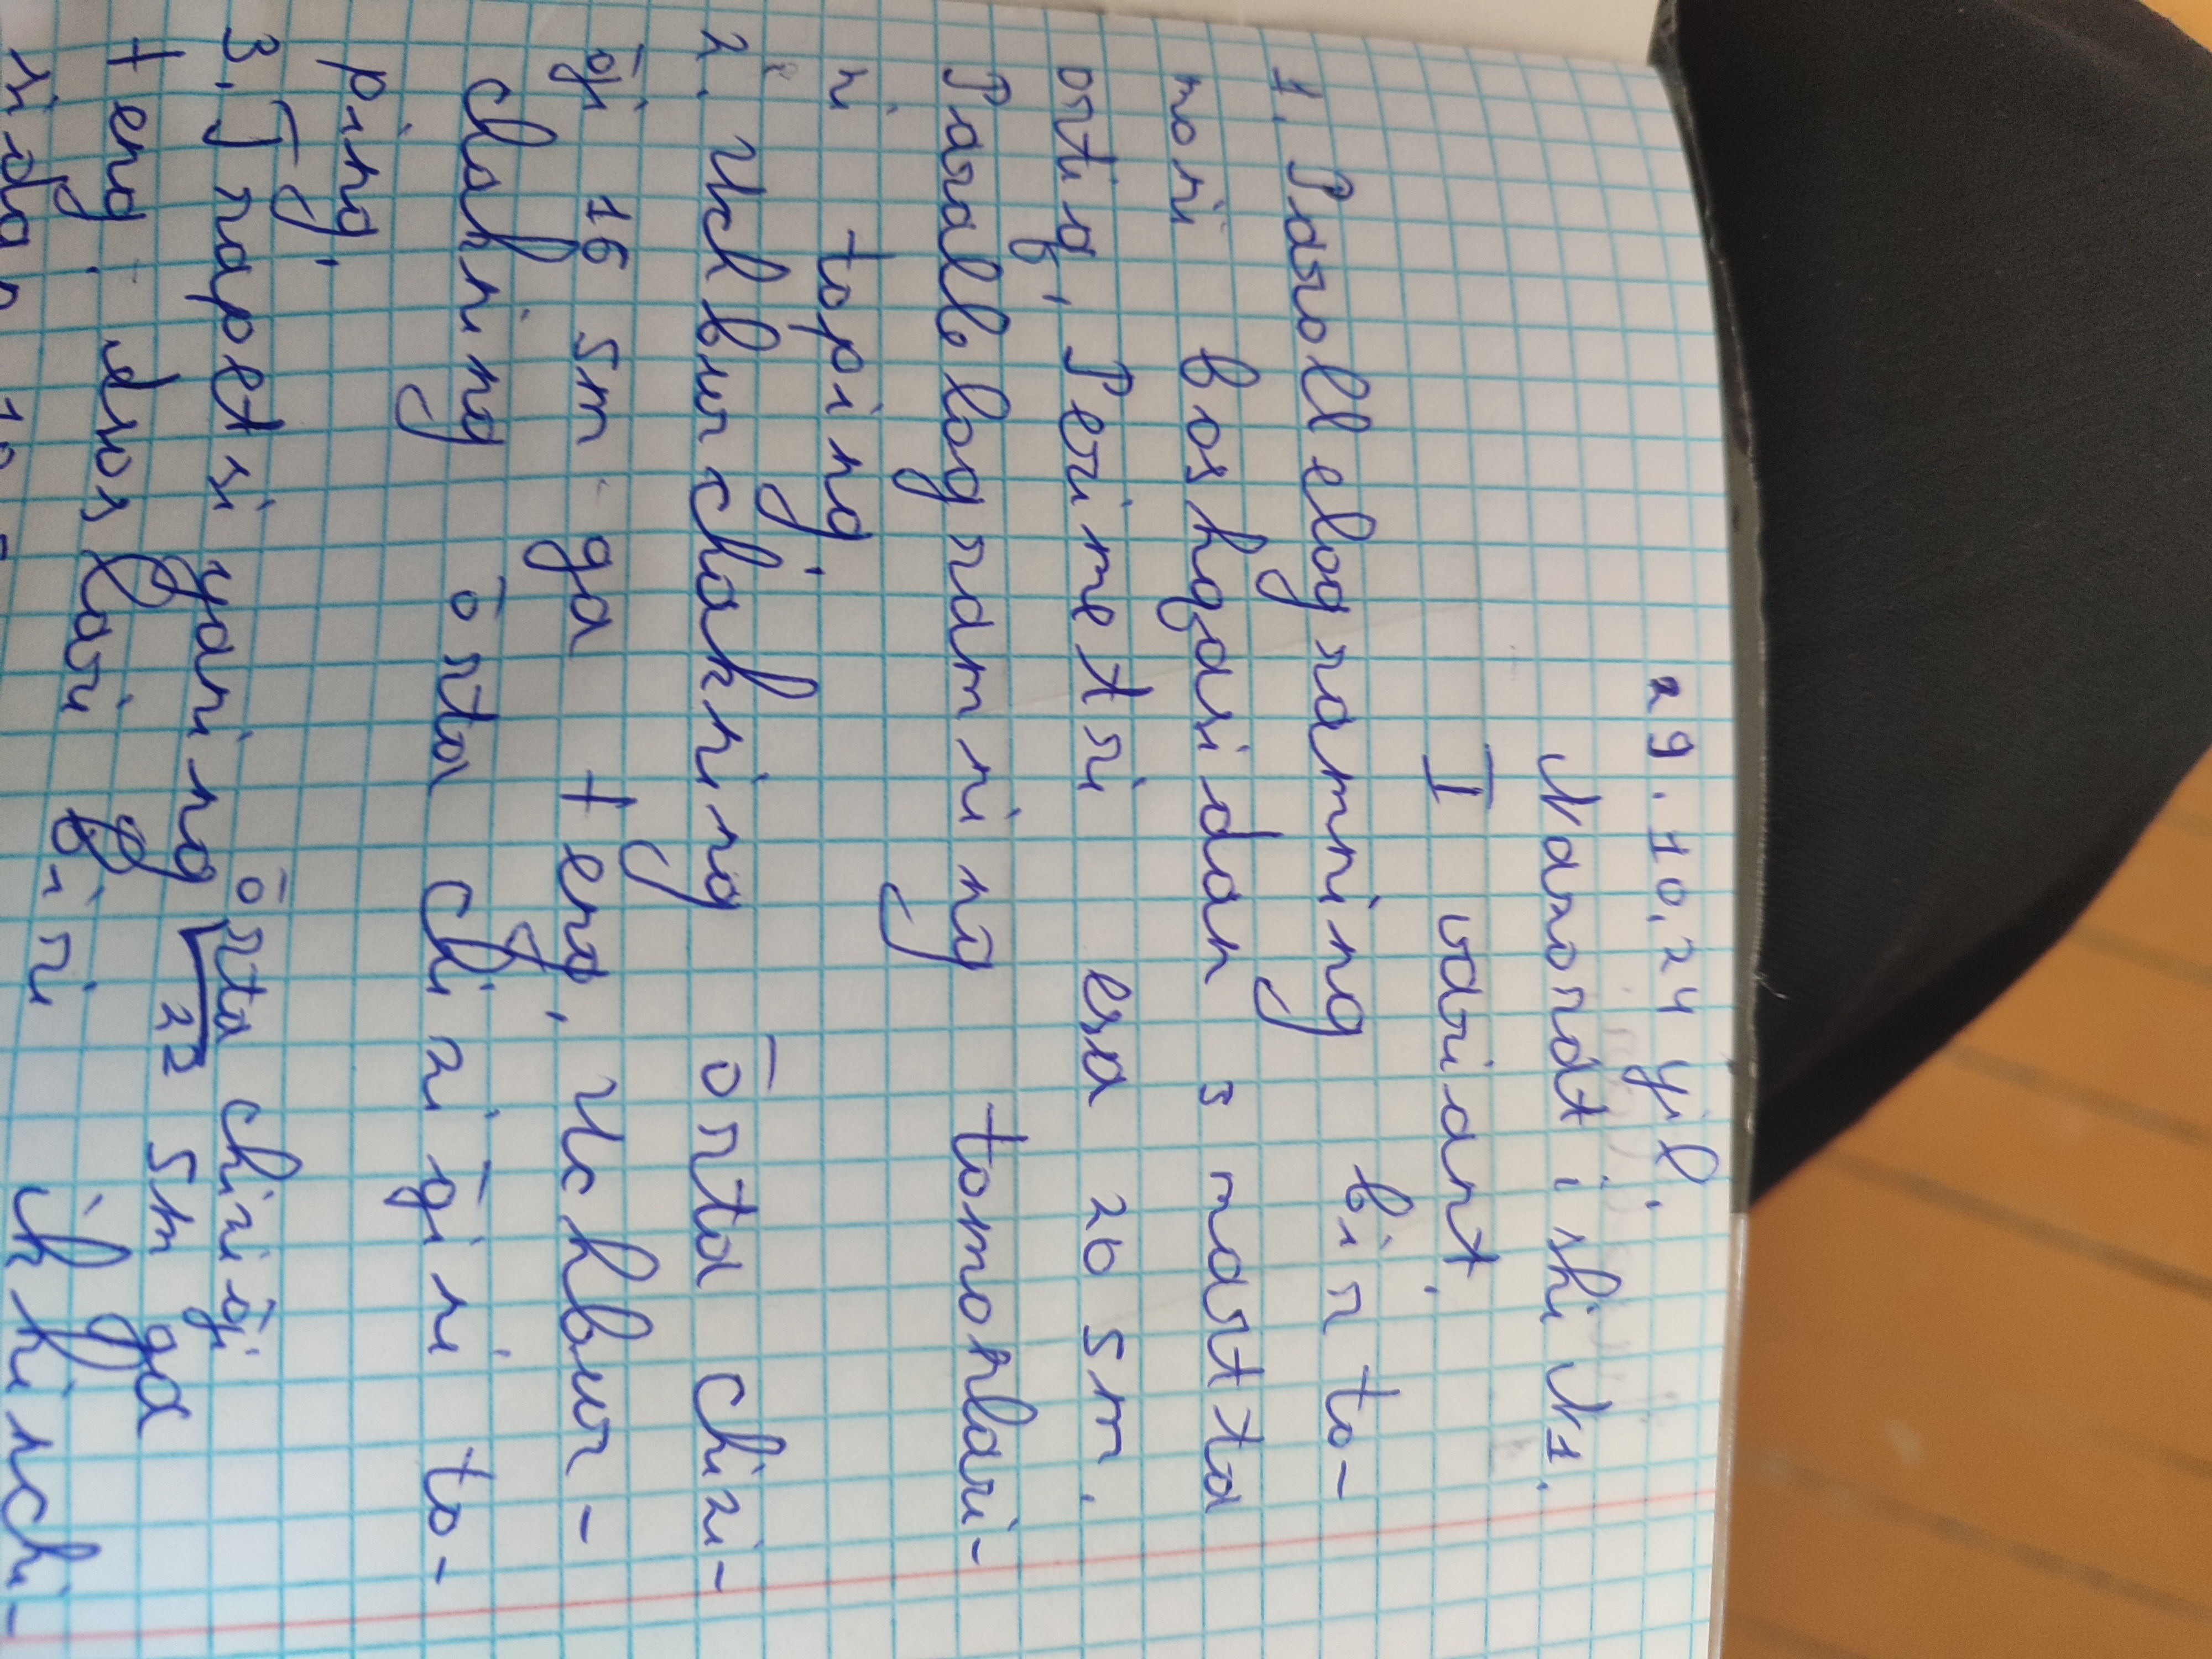 29.10.24 yil.
Nazorat ishi №1.
I variant.
1. Parallelogramning bir to-
moni boshqasidan 3 marta
ortiq, Perimetri esa 20 sm.
Parallelogramning tomonlari-
ni toping.
2. Uchburchakning ōrta chizi-
ği 16 sm ga teng, Uchbur-
chakning ōrta chiziğini to-
ping.
3. Trapetsiyaning ōrta chiziği
22 sm ga
teng. asoslari biri ikkinchi-
sidan